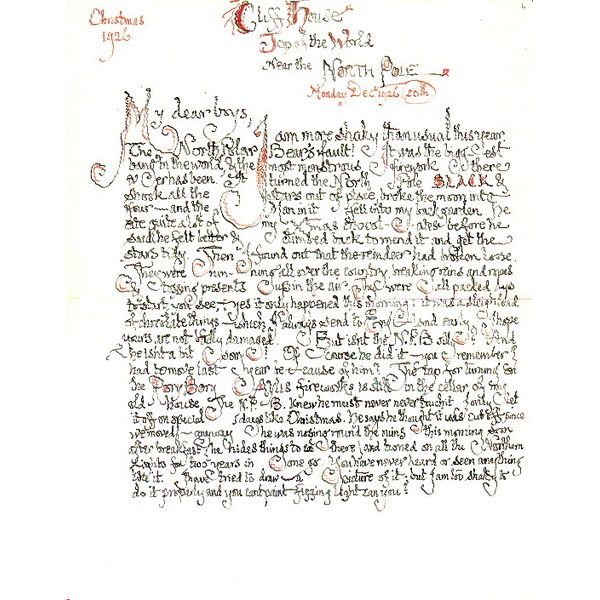 Christmas
1926
Cliff House
Top of the World
Near the
NORTH POLE
Monday Dec 1926 20th
My dear boys,
I am more shaky than usual this year.
The North Polar Bear's fault! It was the biggest
bang in the world, & the most monstrous firework there
ever has been. It turned the North Pole BLACK &
shook all the stars out of place, broke the moon into
four — and the Man in it fell into my back garden. He
ate quite a lot of my Xmas chocolates before he
said he felt better & climbed back to mend it and get the
stars tidy. Then I found out that the reindeer had broken loose.
They were running all over the country, breaking reins and ropes
& tossing presents up in the air. They were all packed up
to start, you see, — yes it only happened this morning: it was a sleighload
of chocolate things — which I always send to England early. I hope
yours are not badly damaged. But isn't the N.P.B silly? And
he isn't a bit sorry! Of course he did it — you remember I
had to move last year because of him? The tap for turning on
the Rory Bory Aylis fireworks is still in the cellar of my
old house. The N.P.B. knew he must never never touch it. I only let
it off on special days like Christmas. He says he thought it was cut off since
we moved — anyway he was nosing round the ruins this morning soon
after breakfast (he hides things to eat there) and turned on all the Northern
Lights for two years in one go. You have never heard or seen anything
like it. I have tried to draw a picture of it; but I am too shaky to
do it properly and you can't paint fizzing light can you?